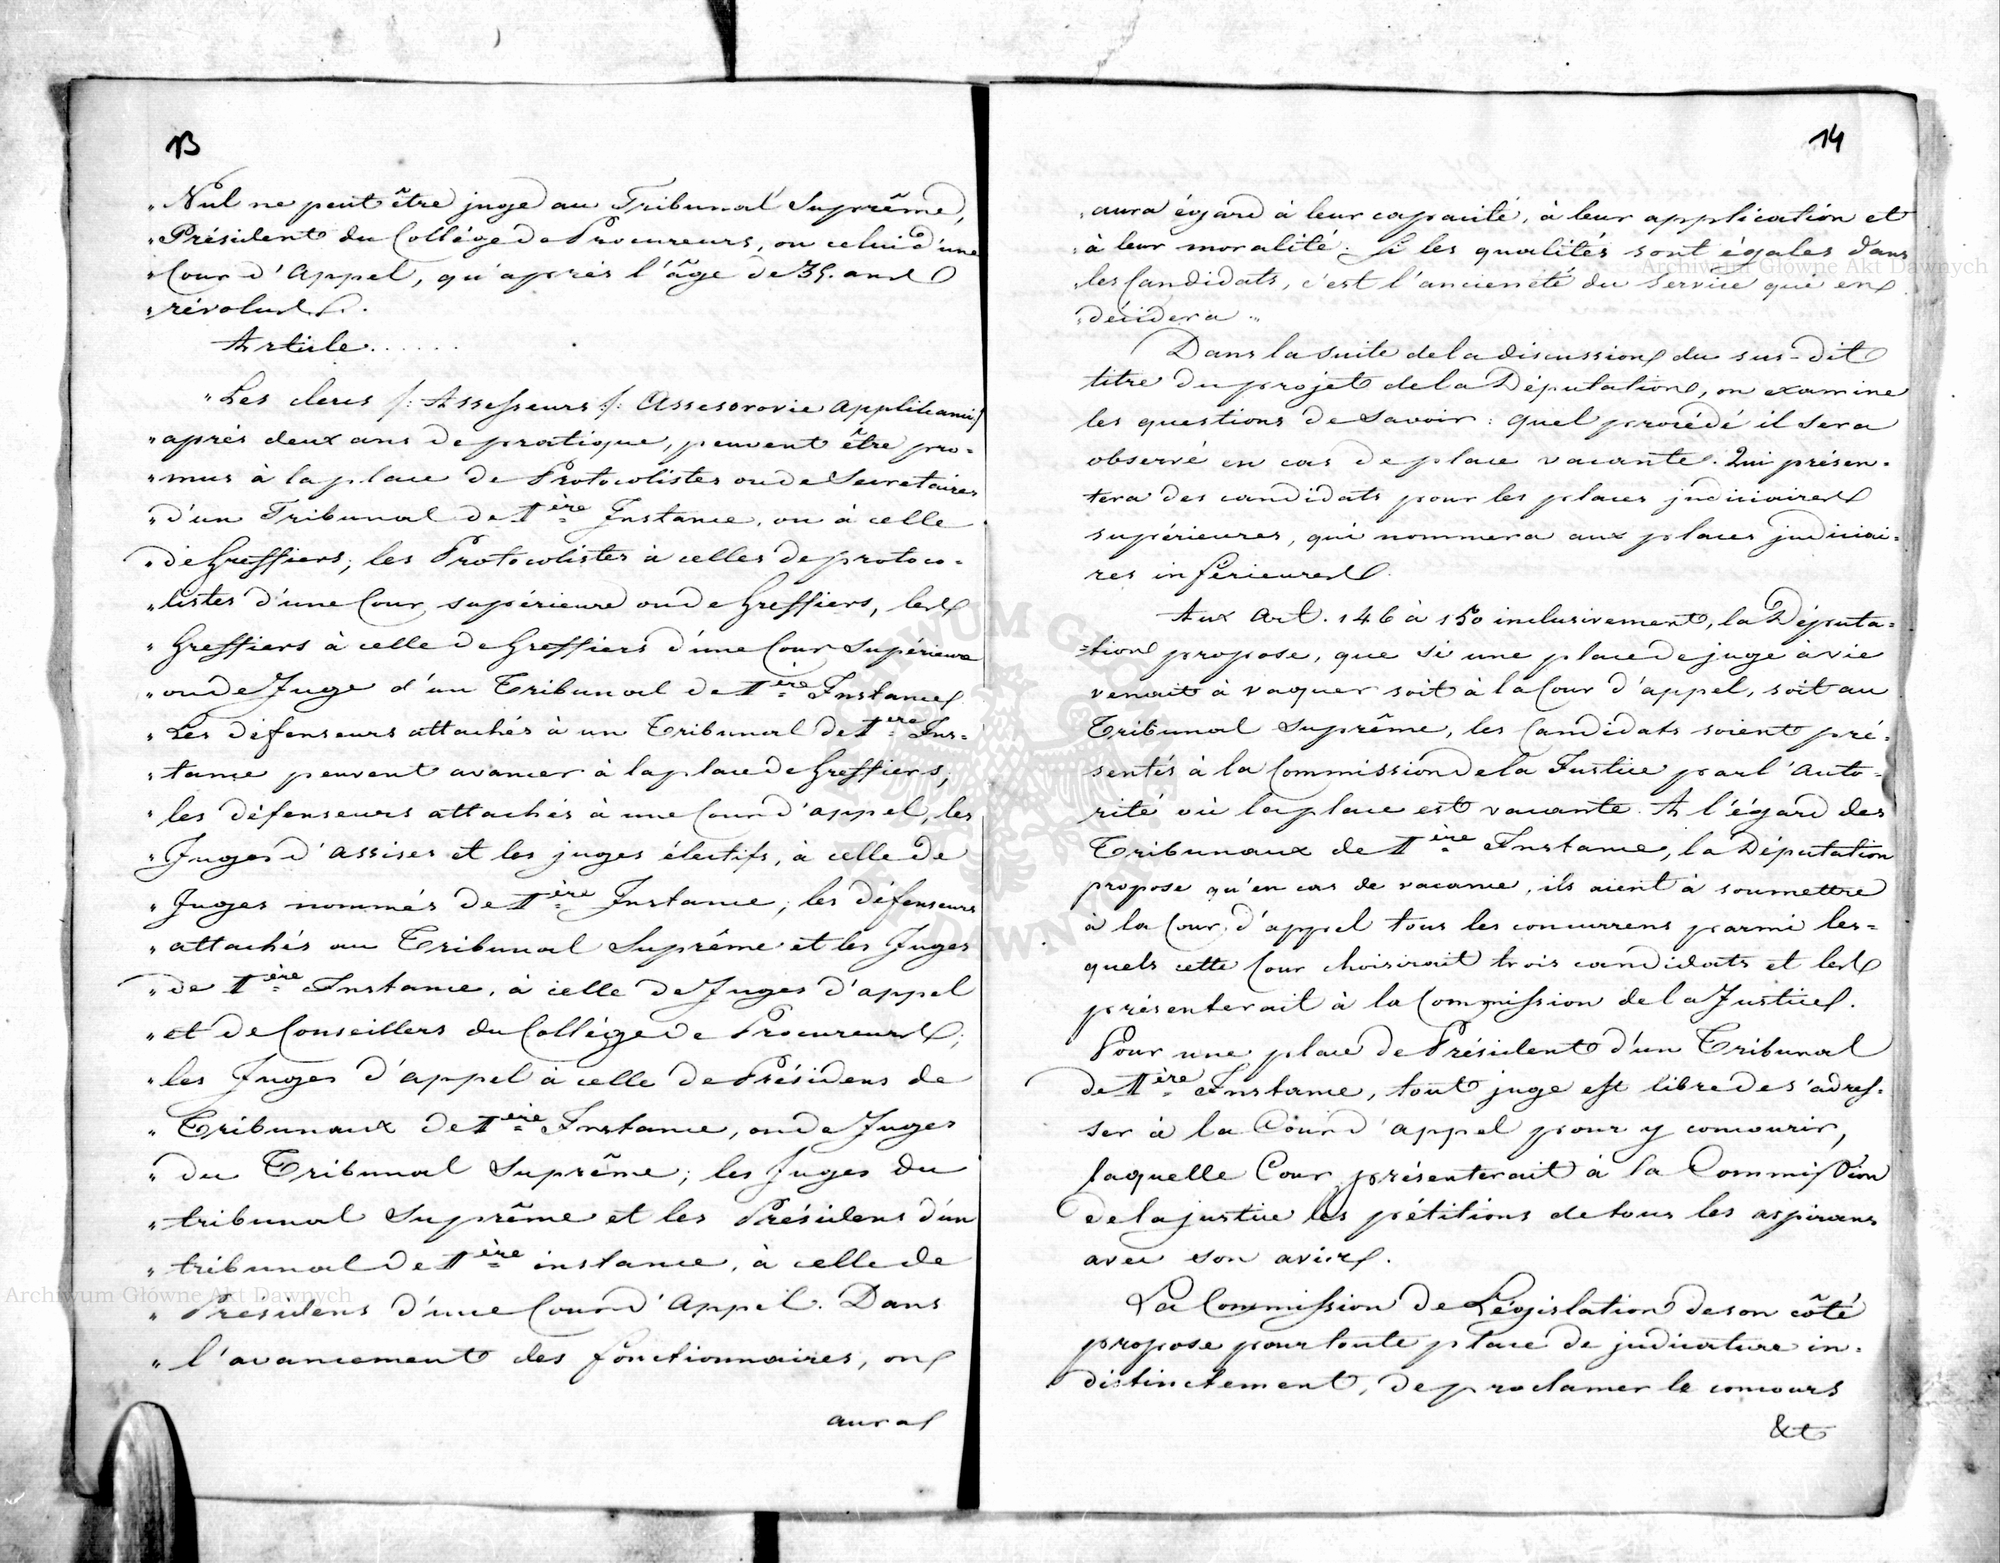 13
„ Nul ne peut être juge au Tribunal Suprême,
„ Président du Collége de Procureurs, ou celui d'une
„ Cour d'Appel, qu'après l'âge de 35. ans
„ révolus.
Article......
„ Les clercs /: Assesseurs /: Assesorovie Applikanci/
„ après deux ans de pratique, peuvent être pro-
„ mus à la place de Protocolistes ou de Secretaires
„ d'un Tribunal de 1ère Instance, ou à celle
„ de Greffiers; les Protocolistes à celles de protoco-
„ listes d'une Cour supérieure ou de Greffiers, les
„ Greffiers à celle de Greffiers d'une Cour Supérieure
„ ou de Juge d'un Tribunal de 1ère Instance
„ Les défenseurs attachés à un Tribunal de 1ère Ins-
„ tance peuvent avancer à la place de Greffiers,
„ les défenseurs attachés à une Cour d'appel, les
„ Juges d'assises et les juges électifs, à celle de
„ Juges nommés de 1ère Instance; les défenseurs
„ attachés au Tribunal Suprême et les Juges
„ de 1ère Instance, à celle de Juges d'appel
„ et de Conseillers du Collége de Procureurs;
„ les Juges d'appel à celle de Présidens de
„ Tribunaux de 1ère Instance, ou de Juges
„ du Tribunal Suprême; les Juges du
„ tribunal Suprême et les Présidens d'un
„ tribunal de 1ère instance, à celle de
„ Présidens d'une Cour d'Appel. Dans
„ l'avancement des fonctionnaires, on
aura
14
„ aura égard à leur capacité, à leur application et
„ à leur moralité. Si les qualités sont égales dans
„ les Candidats, c'est l'ancienété du service que en
„ décidera „
Dans la suite de la discussion du sus-dit
titre du projet de la Députation, on examine
les questions de savoir: quel procédé il sera
observé en cas de place vacante. Qui présen-
tera des candidats pour les places judiciaires
supérieures, qui nommera aux places judiciai-
res inférieures.
Aux Art. 146 à 150 inclusivement, la Députa-
tion propose, que si une place de juge à vie
venait à vaquer soit à la Cour d'appel, soit au
Tribunal Suprême, les Candidats soient pré-
sentés à la Commission de la Justice par l'Auto-
rité où la place est vacante. A l'égard des
Tribunaux de 1ère Instance, la Députation
propose qu'en cas de vacance, ils aient à soumettre
à la Cour d'appel tous les concurrens parmi les-
quels cette Cour choisirait trois candidats et les
présenterait à la Commission de la Justice.
Pour une place de Président d'un Tribunal
de 1ère Instance, tout juge est libre de s'adres-
ser à la Cour d'appel pour y concourir,
laquelle Cour présenterait à la Commission
de la justice les pétitions de tous les aspirans
avec son avis.
La Commission de Législation de son côté
propose pour toute place de judicature in-
distinctement, de proclamer le concours
&t
Archiwum Główne Akt Dawnych
Archiwum Główne Akt Dawnych